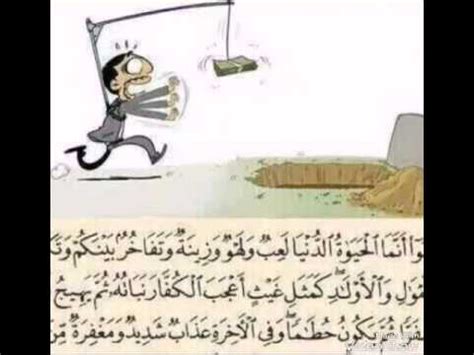 وَا أَنَّمَا الْحَيَوٰةُ الدُّنْيَا لَعِبٌ وَلَهْوٌ وَزِينَةٌ وَتَفَاخُرٌ بَيْنَكُمْ وَتَكَ
مْوَٰلِ وَالْأَوْلَٰدِ كَمَثَلِ غَيْثٍ أَعْجَبَ الْكُفَّارَ نَبَاتُهُۥ ثُمَّ يَهِيجُ
ثُمَّ يَكُونُ حُطَٰمًا وَفِي الْآخِرَةِ عَذَابٌ شَدِيدٌ وَمَغْفِرَةٌ مِّنَ